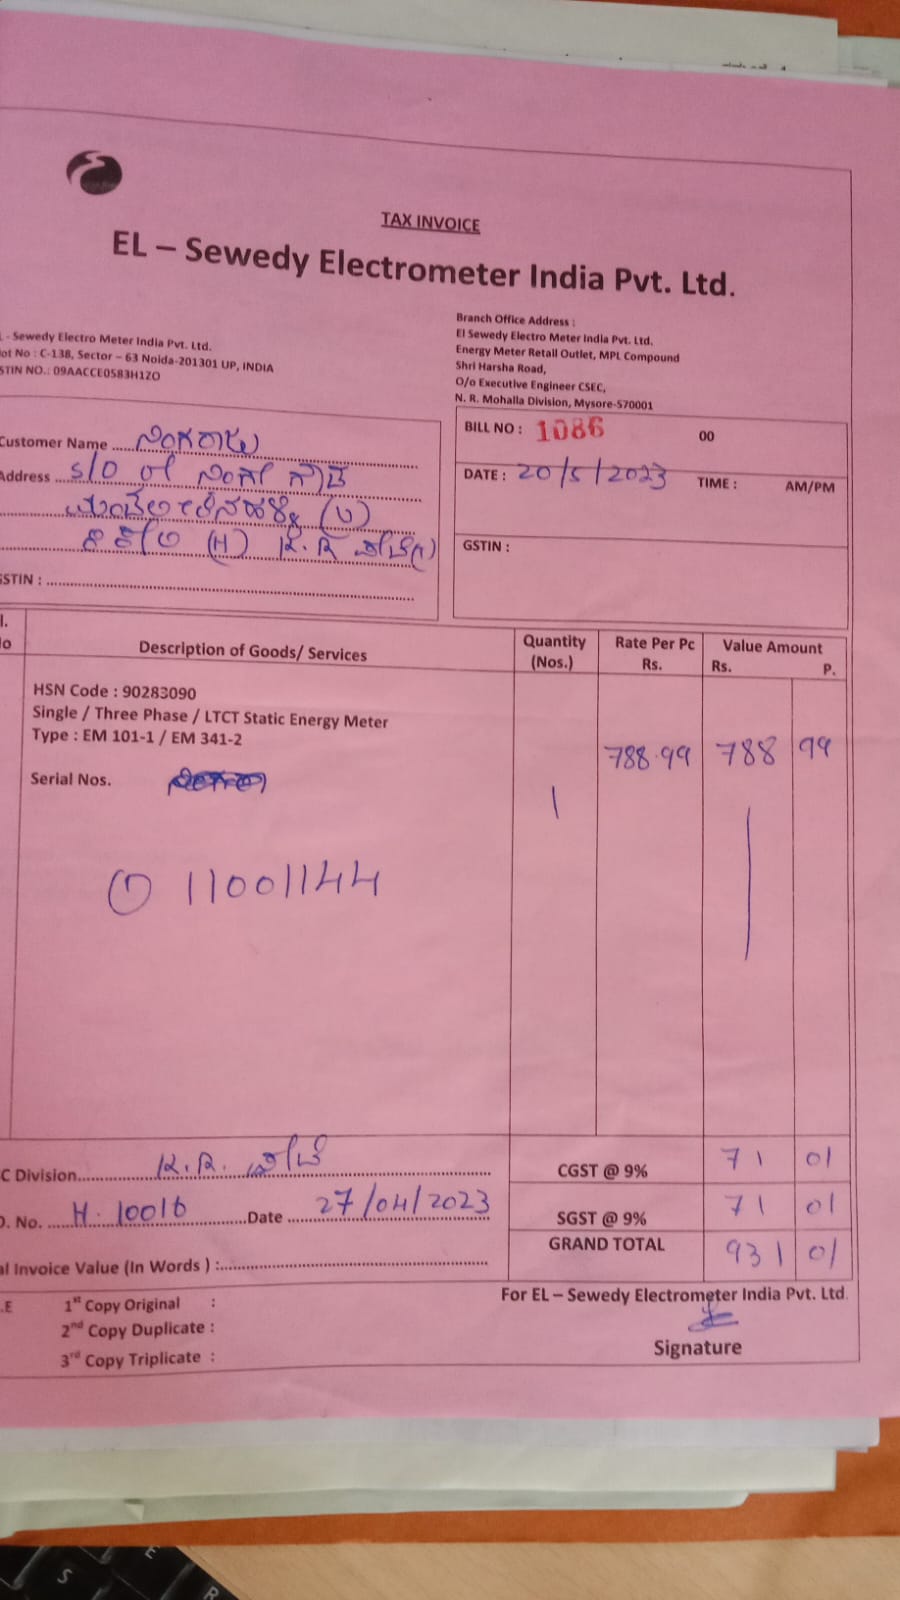 TAX INVOICE
EL – Sewedy Electrometer India Pvt. Ltd.
- Sewedy Electro Meter India Pvt. Ltd.
ot No : C-138, Sector – 63 Noida-201301 UP, INDIA
STIN NO.: 09AACCE0583H1ZO
Branch Office Address :
El Sewedy Electro Meter India Pvt. Ltd.
Energy Meter Retail Outlet, MPL Compound
Shri Harsha Road,
O/o Executive Engineer CSEC,
N. R. Mohalla Division, Mysore-570001
Customer Name ನಿಂಗರಾಜು
Address S/O of ನಿಂಗೇ ಗೌಡ
(V)
(H) K.R ಪೇಟೆ
GSTIN :
BILL NO : 1086 00
DATE : 20/5/2023 TIME : AM/PM
GSTIN :
l.
lo Description of Goods/ Services Quantity (Nos.) Rate Per Pc Rs. Value Amount Rs. P.
HSN Code : 90283090
Single / Three Phase / LTCT Static Energy Meter
Type : EM 101-1 / EM 341-2
788.99 788 99
Serial Nos.
1
① 11001144
C Division K.R. ಪೇಟೆ
CGST @ 9% 71 01
O. No. H.10016 Date 27/04/2023
SGST @ 9% 71 01
GRAND TOTAL 931 01
al Invoice Value (In Words ) :
.E 1st Copy Original :
2nd Copy Duplicate :
3rd Copy Triplicate :
For EL – Sewedy Electrometer India Pvt. Ltd.
Signature